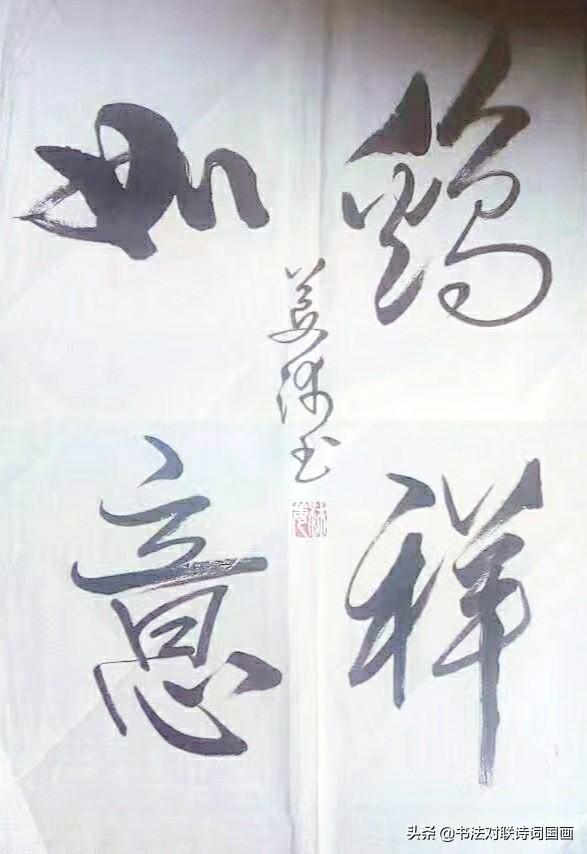 鷄祥
如意
姜
头条 @书法对联诗词国画